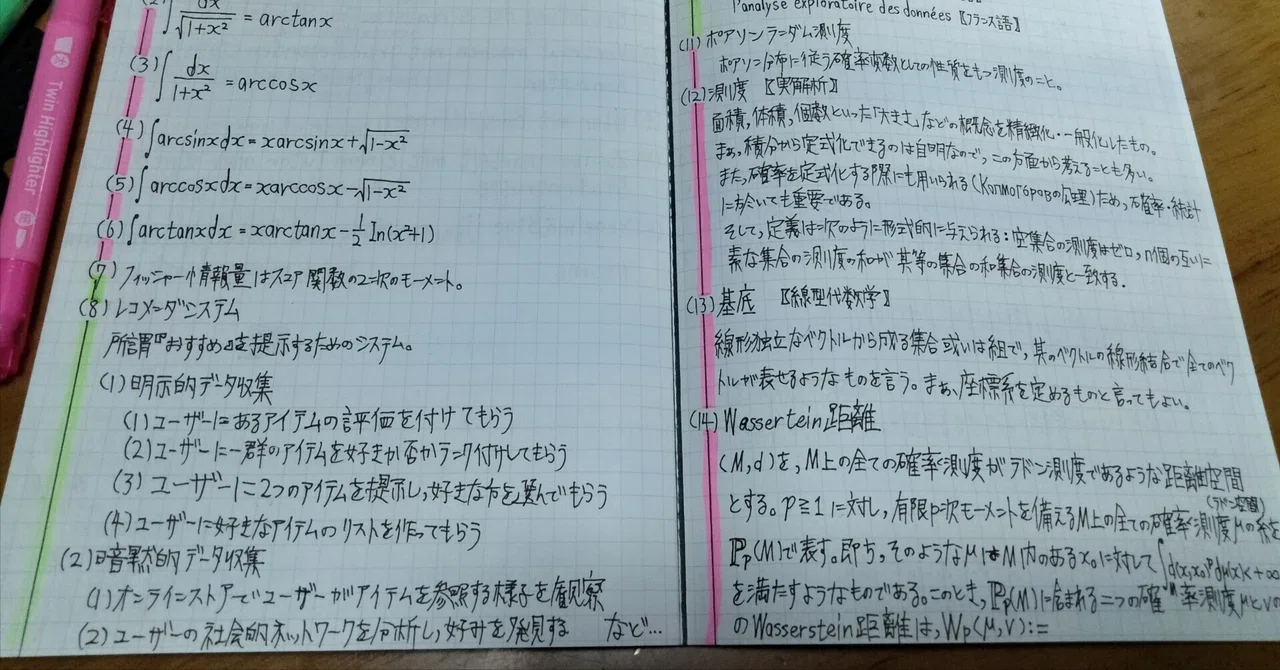 Twin Highlighter
(2) ∫ dx/√(1+x²) = arctanx
(3) ∫ dx/(1+x²) = arccosx
(4) ∫arcsinxdx = xarcsinx+√(1-x²)
(5) ∫arccosxdx = xarccosx-√(1-x²)
(6) ∫arctanxdx = xarctanx-1/2 In(x²+1)
(7) フィッシャー情報量はスコア関数の2次のモーメント。
(8) レコメンダシステム
所謂『おすすめ』を提示するためのシステム。
(1) 明示的データ収集
(1) ユーザーにあるアイテムの評価を付けてもらう
(2) ユーザーに一群のアイテムを好きか否かランク付けしてもらう
(3) ユーザーに2つのアイテムを提示し、好きな方を選んでもらう
(4) ユーザーに好きなアイテムのリストを作ってもらう
(2) 暗黙的データ収集
(1) オンラインストアでユーザーがアイテムを参照する様子を観察
(2) ユーザーの社会的ネットワークを分析し、好みを発見する など…
l'analyse exploratoire des données 〖フランス語〗
(11) ポアソンランダム測度
ポアソン分布に従う確率変数としての性質をもつ測度のこと。
(12) 測度 〖実解析〗
面積,体積,個数といった「大きさ」などの概念を精緻化・一般化したもの。
まぁ、積分から定式化できるのは自明なので、この方面から考えることも多い。
また、確率を定式化する際にも用いられる(Колмогоровの公理)ため、確率・統計
に於いても重要である。
そして、定義は次のように形式的に与えられる:空集合の測度はゼロ,n個の互いに
素な集合の測度の和が其等の集合の和集合の測度と一致する.
(13) 基底 〖線型代数学〗
線形独立なベクトルから成る集合或いは組で、其のベクトルの線形結合で全てのベク
トルが表せるようなものを言う。まぁ、座標系を定めるものと言ってもよい。
(14) Wassertein距離
(M,d)を、M上の全ての確率測度がラドン測度であるような距離空間
(ラドン空間)
とする。p≧1に対し、有限p次モーメントを備えるM上の全ての確率測度μの
ℙp(M)で表す。即ち、そのようなμはM内のあるx₀に対して∫d(x,x₀)ᵖdμ(x)<+∞
を満たすようなものである。このとき、ℙp(M)に含まれる二つの確率測度μとνの
のWasserstein距離は、Wp(μ,ν):=